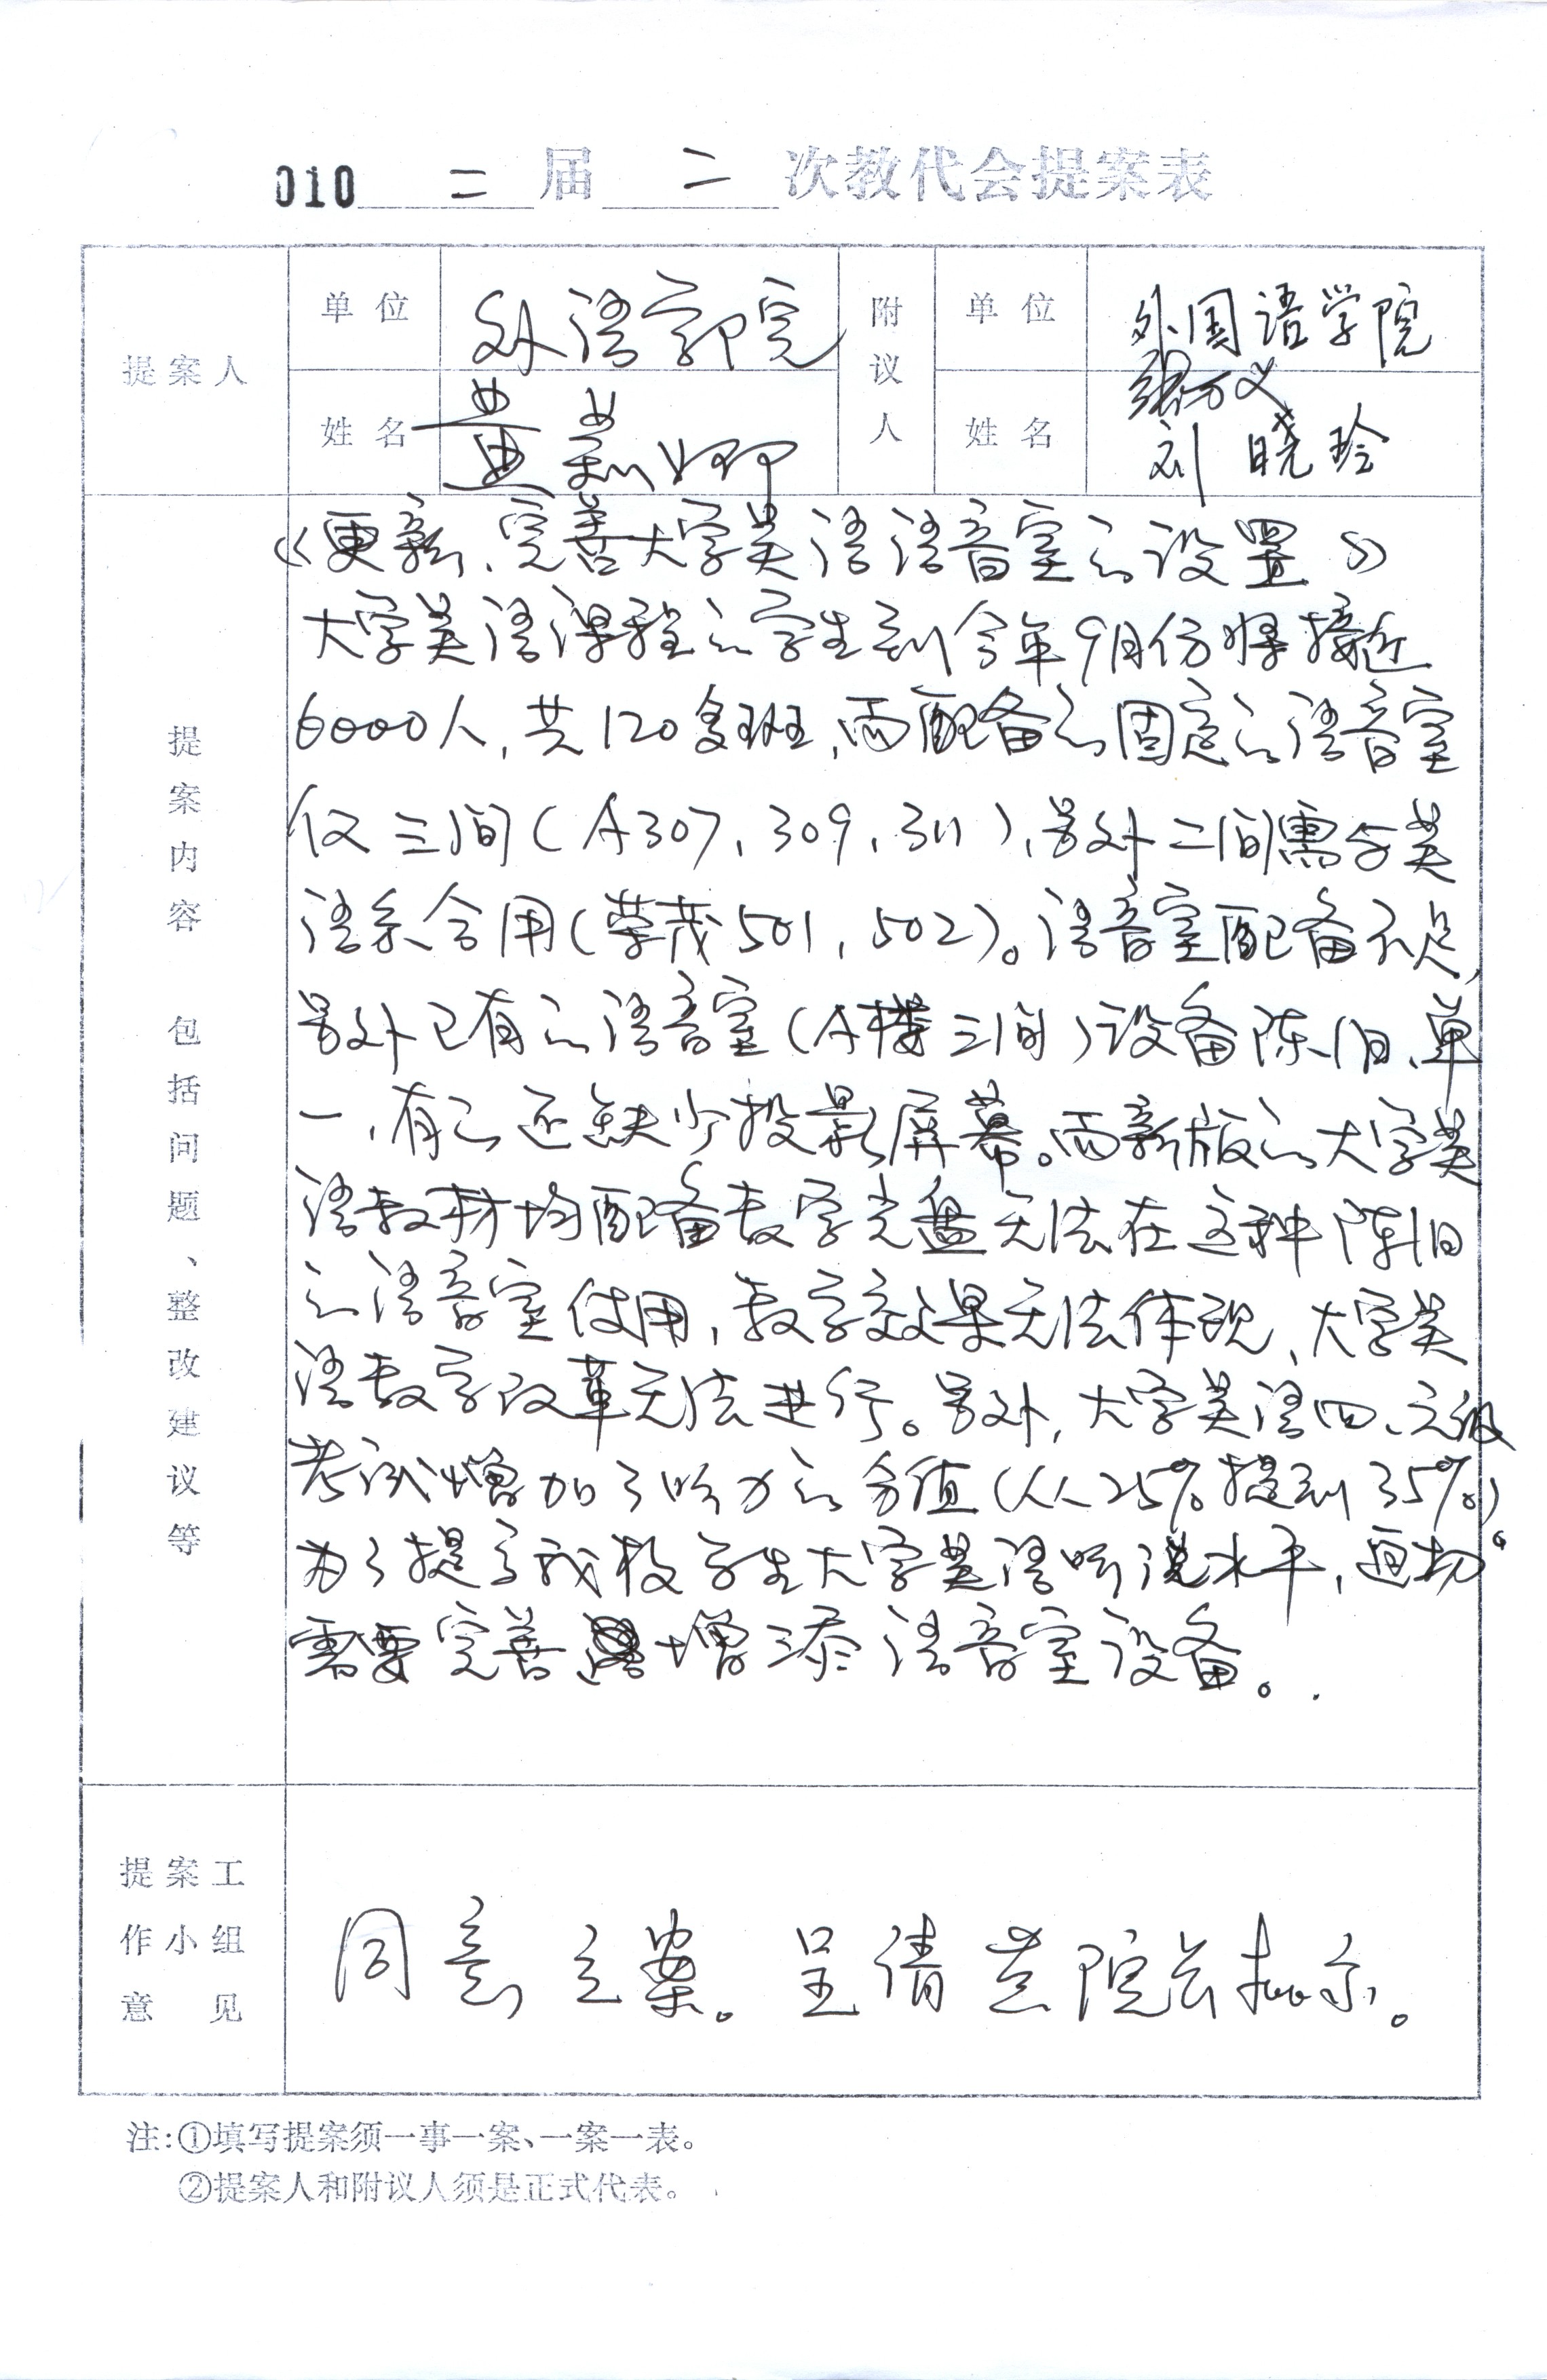 010 二 届 二 次教代会提案表
提案人
单位
外语学院
姓名
黄
附议人
单位
外国语学院
姓名
张万义
刘晓玲
提案内容 包括问题、整改建议等
《更新、完善大学英语语音室的设置》
大学英语课程的学生到今年9月份将接近
6000人,共120多班,而配备的固定的语音室
仅三间(A307、309、311),另外二间需与英
语系合用(荣茂501,502)。语音室配备不足,
另外已有的语音室(A楼三间)设备陈旧、单
一,有的还缺少投影屏幕。而新版的大学英
语教材均配备教学光盘无法在这种陈旧
的语音室使用,教学效果无法体现、大学英
语教学改革无法进行。另外,大学英语四、六级
考试增加了听力的分值(从25%提到35%)。
为了提高我校学生大学英语听说水平,迫切
需要完善增添语音室设备。
提案工
作小组
意见
同意立案。呈请黄院长批示。
注:①填写提案须一事一案、一案一表。
②提案人和附议人须是正式代表。